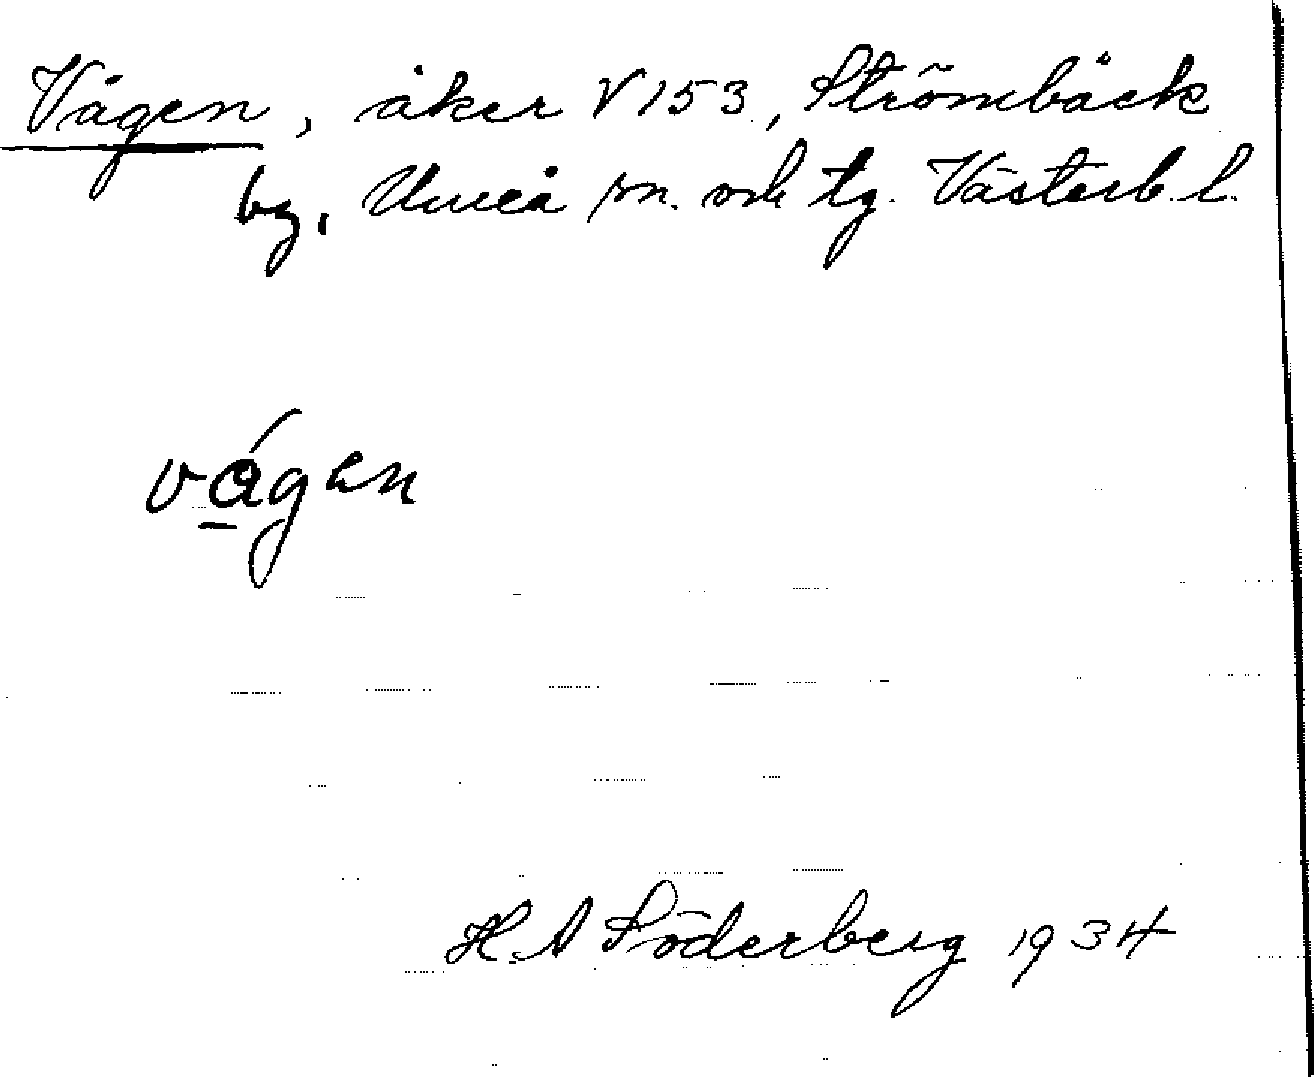 Vågen, åker V153, Strömbäck
by, Umeå sn. och tg. Västerb. l.
vågen
H. A Söderberg 1934